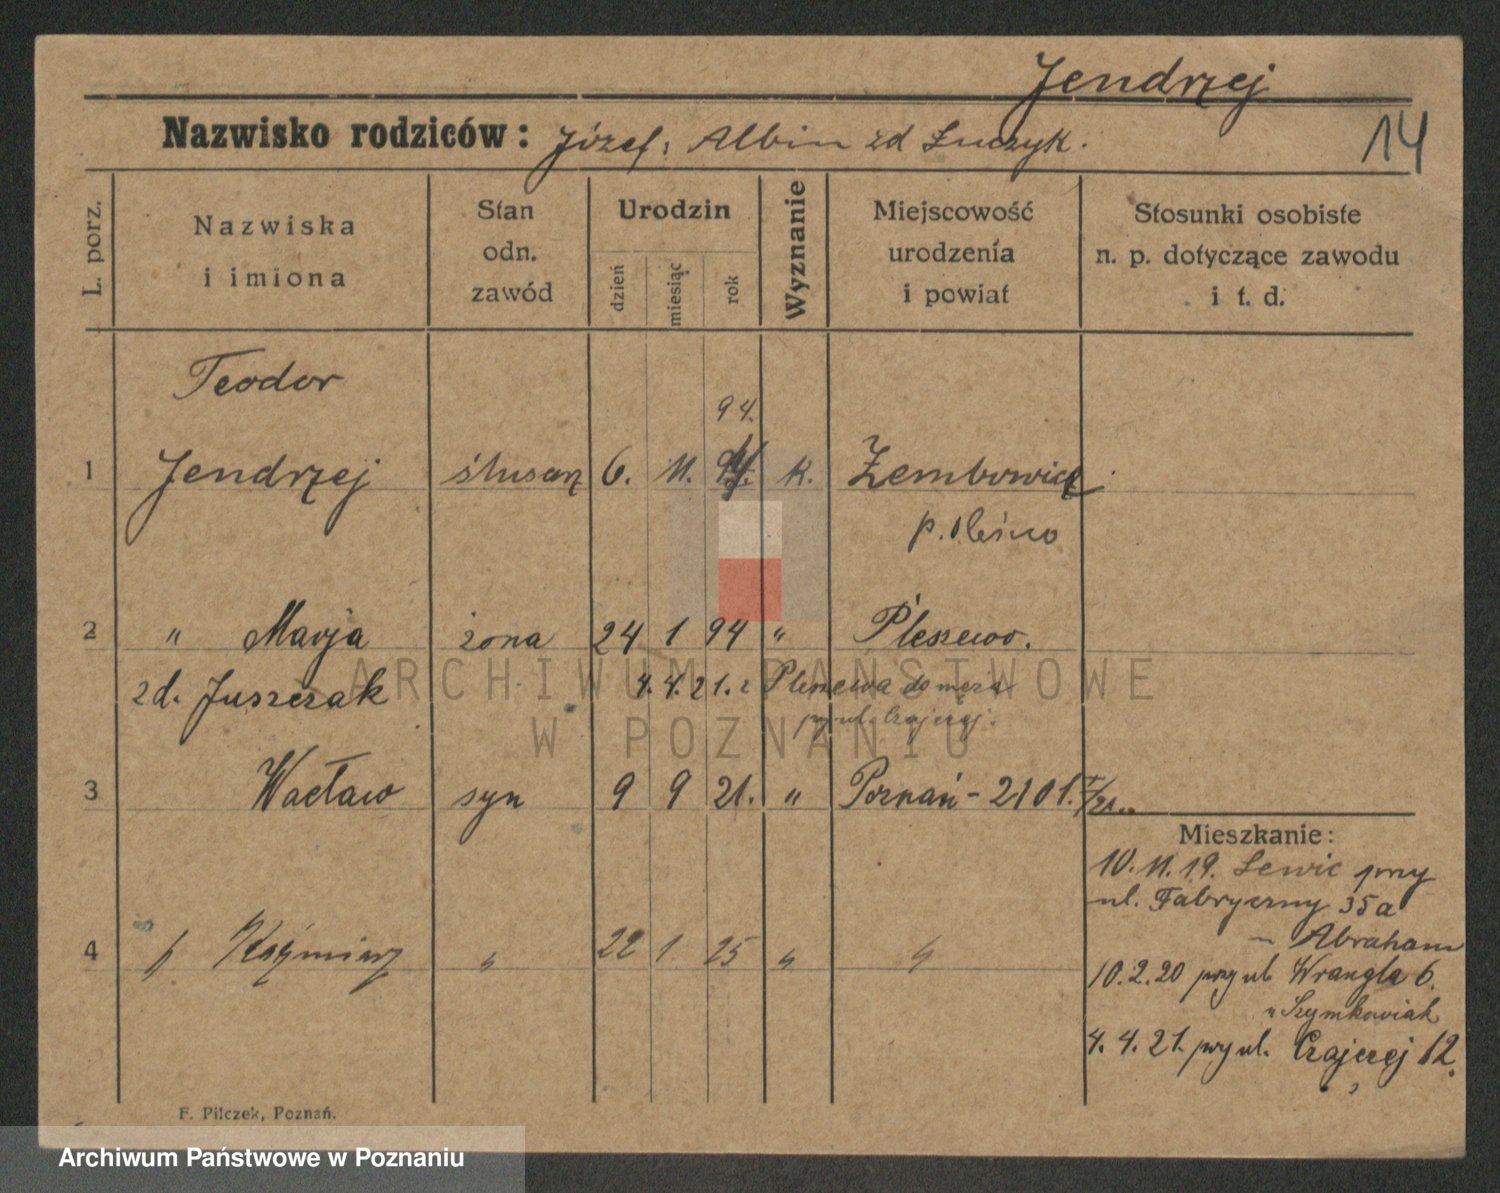 Jendrzej
Nazwisko rodziców: Józef, Albin zd Łuczyk.
14
L. porz.
Nazwiska
i imiona
Stan
odn.
zawód
Urodzin
dzień
miesiąc
rok
Wyznanie
Miejscowość
urodzenia
i powiat
Stosunki osobiste
n. p. dotyczące zawodu
i t. d.
Teodor
94.
1 Jendrzej ślusarz 6. 11. k. Zembowice
p. Oleśno
2 " Marja żona 24 1 94 " Pleszewo.
zd. Juszczak 4. 4. 21. z Pleszewa do męża
przy ul. Czajczej.
3 Wacław syn 9 9 21. " Poznań - 2101. I/21.
4 Kaźmierz " 22 1 25 " "
Mieszkanie:
10. 11. 19. Lewic przy
ul. Fabryczny 35a
- Abraham
10. 2. 20 przy ul Wrangla 6.
" Szymkowiak
4. 4. 21. przy ul. Czajczej 12.
F. Pilczek, Poznań.
ARCHIWUM PAŃSTWOWE
W POZNANIU
Archiwum Państwowe w Poznaniu